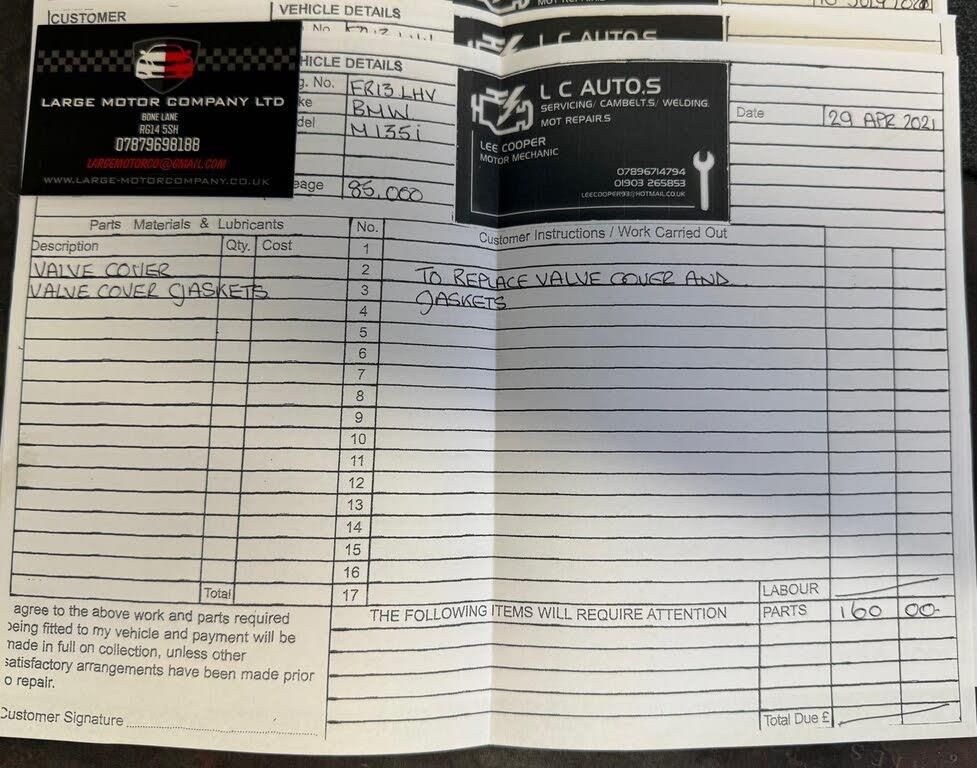 CUSTOMER
VEHICLE DETAILS
L C AUTO.S
LARGE MOTOR COMPANY LTD
BONE LANE
RG14 5SH
07879698188
LARGEMOTORCO@GMAIL.COM
WWW.LARGE-MOTORCOMPANY.CO.UK
HICLE DETAILS
g. No. FR13 LHV
ke BMW
del M135i
eage 85,000
L C AUTO.S
SERVICING/ CAMBELT.S/ WELDING.
MOT REPAIR.S
LEE COOPER
MOTOR MECHANIC
07896714794
01903 265853
LEECOOPER93@HOTMAIL.CO.UK
Date 29 APR 2021
Parts Materials & Lubricants
No.
Customer Instructions / Work Carried Out
Description Qty. Cost
1
VALVE COVER
2
TO REPLACE VALVE COVER AND
VALVE COVER GASKETS
3
GASKETS
4
5
6
7
8
9
10
11
12
13
14
15
16
Total
17
LABOUR
THE FOLLOWING ITEMS WILL REQUIRE ATTENTION
PARTS 160 00-
agree to the above work and parts required
being fitted to my vehicle and payment will be
made in full on collection, unless other
satisfactory arrangements have been made prior
o repair.
Customer Signature
Total Due £